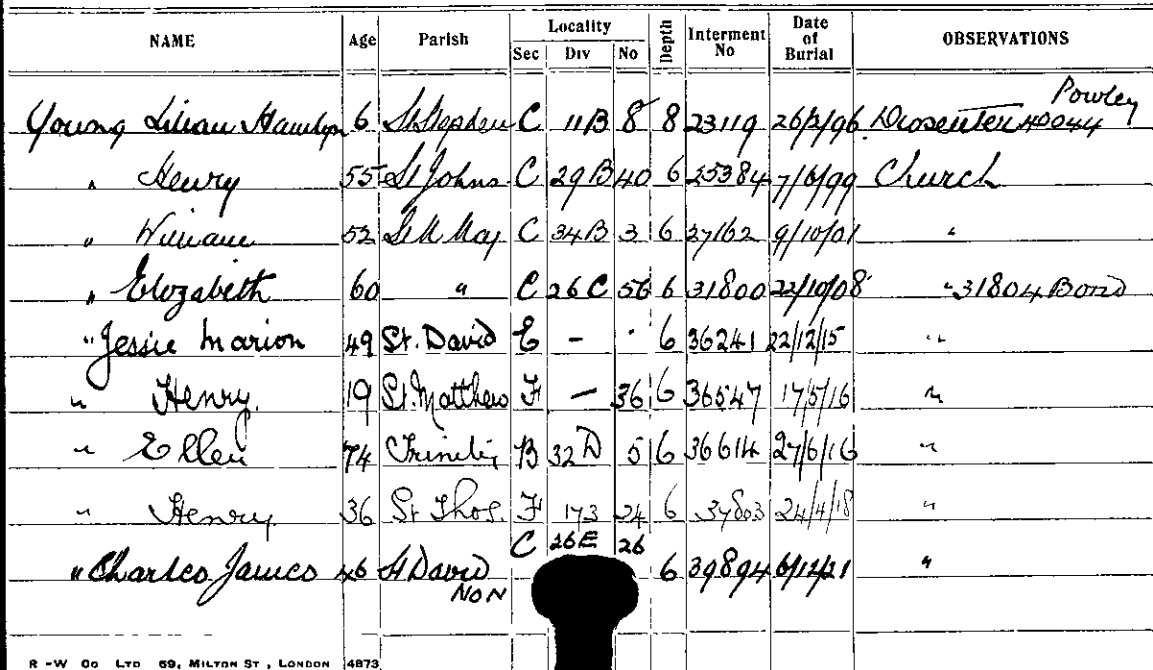 NAME Age Parish Locality Depth Interment No Date of Burial OBSERVATIONS
Sec Div No
Powley
Young Lilian Hamlyn 6 St Stephen C 11B 8 8 23119 26/2/96 Dissenter 40044
" Henry 55 St Johns C 29B 40 6 25384 7/6/99 Church
" William 52 St M Maj C 34B 3 6 27162 9/10/01 "
" Elizabeth 60 " C 26C 56 6 31800 22/10/08 " 31804 Bond
" Jessie Marion 49 St. David E - . 6 36241 22/12/15 "
" Henry. 19 St. Matthew F - 36 6 36547 17/5/16 "
" Ellen 74 Trinity B 32D 5 6 36614 27/6/16 "
" Henry 36 St Thos. F 173 24 6 37803 24/4/18 "
C 26E 26
" Charles James 46 St David 6 39894 6/12/21 "
NON
R-W Co LTD 69, MILTON ST, LONDON 4873